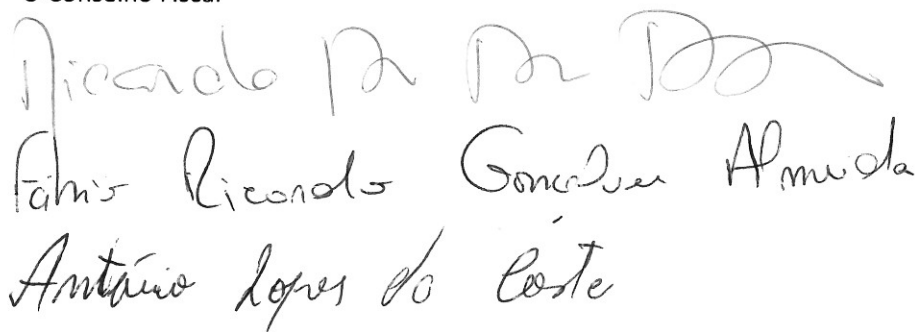 O Conselho Fiscal
Ricardo
Fábio Ricardo Gonçalves Almeida
António Lopes da Costa